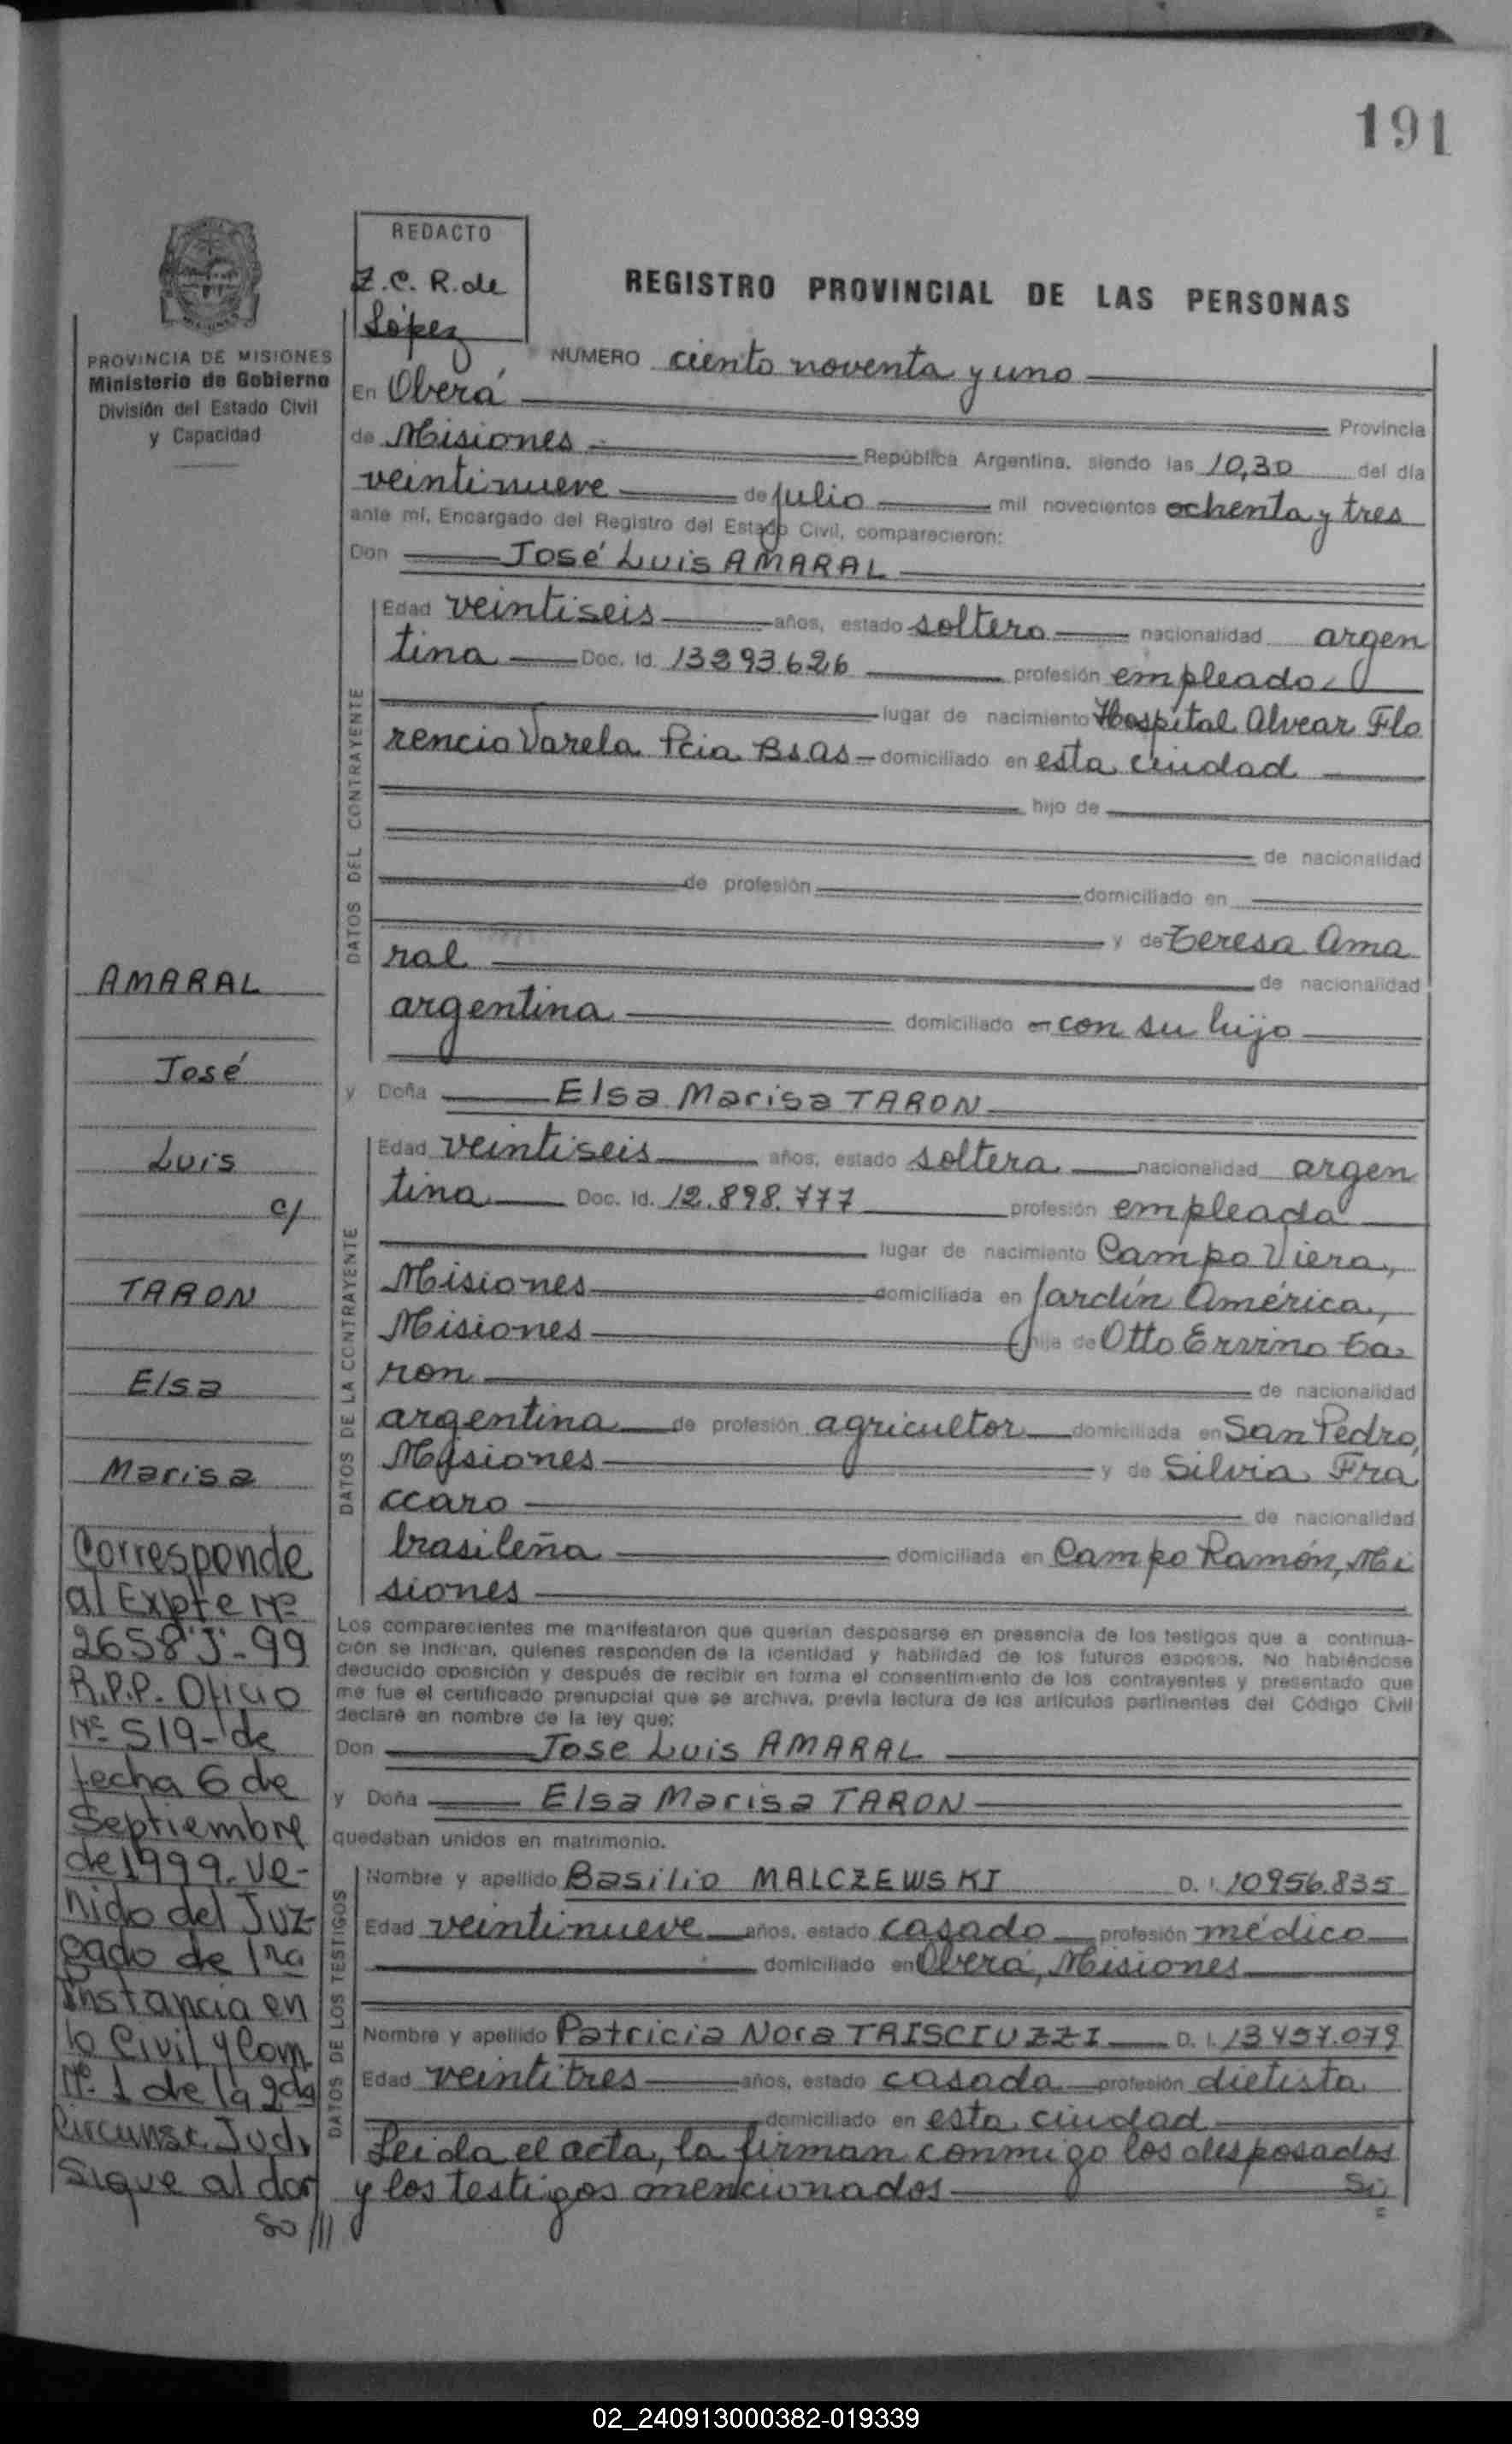 191
REDACTO
Z.C. R. de
López
REGISTRO PROVINCIAL DE LAS PERSONAS
PROVINCIA DE MISIONES
Ministerio de Gobierno
División del Estado Civil
y Capacidad
NUMERO ciento noventa y uno
En Oberá
Provincia
de Misiones República Argentina, siendo las 10,30 del día
veintinueve de julio mil novecientos ochenta y tres
ante mí, Encargado del Registro del Estado Civil, comparecieron:
Don José Luis AMARAL
DATOS DEL CONTRAYENTE
Edad veintiseis años, estado soltero nacionalidad argen
tina Doc. Id. 13393.626 profesión empleado
lugar de nacimiento Hospital Alvear Flo
rencio Varela Pcia Bs.as domiciliado en esta ciudad
hijo de
de nacionalidad
de profesión domiciliado en
y de Teresa Ama
ral
de nacionalidad
argentina domiciliado en con su hijo
y Doña Elsa Marisa TARON
DATOS DE LA CONTRAYENTE
Edad veintiseis años, estado soltera nacionalidad argen
tina Doc. Id. 12.898.777 profesión empleada
lugar de nacimiento Campo Viera,
Misiones domiciliada en Jardín América,
Misiones hija de Otto Ervino Ta
ron de nacionalidad
argentina de profesión agricultor domiciliada en San Pedro,
Misiones y de Silvia Fra
ccaro de nacionalidad
brasileña domiciliada en Campo Ramón, Mi
siones
Los comparecientes me manifestaron que querían desposarse en presencia de los testigos que a continua-
ción se indican, quienes responden de la identidad y habilidad de los futuros esposos. No habiéndose
deducido oposición y después de recibir en forma el consentimiento de los contrayentes y presentado que
me fue el certificado prenupcial que se archiva, previa lectura de los artículos pertinentes del Código Civil
declaré en nombre de la ley que:
Don Jose Luis AMARAL
y Doña Elsa Marisa TARON
quedaban unidos en matrimonio.
DATOS DE LOS TESTIGOS
Nombre y apellido Basilio MALCZEWSKI D. I. 10956.835
Edad veintinueve años, estado casado profesión médico
domiciliado en Oberá, Misiones
Nombre y apellido Patricia Nora TAISCIUZZI D. I. 13457.079
Edad veintitres años, estado casada profesión dietista
domiciliado en esta ciudad
Leida el acta, la firman conmigo los desposados
y los testigos mencionados
AMARAL
José
Luis
c/
TARON
Elsa
Marisa
Corresponde
al Expte Nº
2658"J"-99
R.P.P. Oficio
Nº 519- de
fecha 6 de
Septiembre
de 1999. Ve-
nido del Juz-
gado de 1ra
Instancia en
lo Civil y Com.
Nº 1 de la 2da
Circunsc. Jud.
Sigue al dor
so ///
02_240913000382-019339